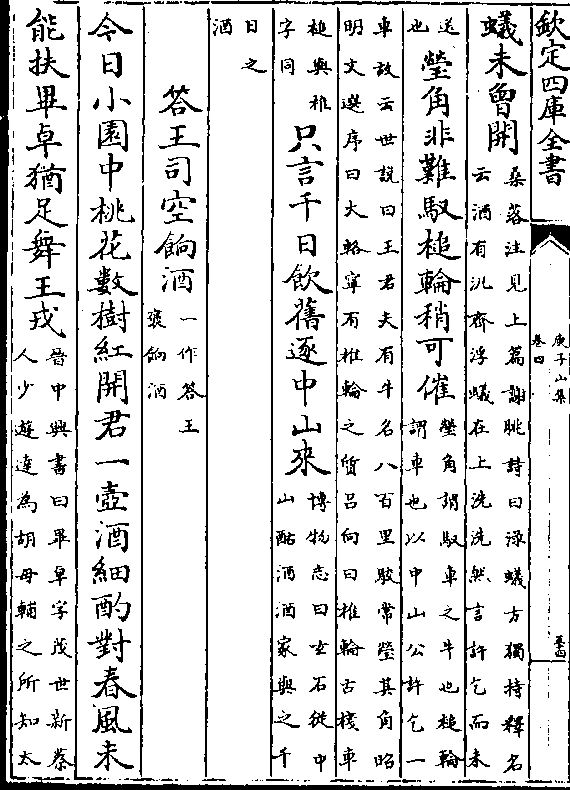 欽定四庫全書
庾子山集
卷四
卷四
蟻未曾開
桑落注見上篇謝朓詩曰渌蟻方獨持釋名
云酒有汎齊浮蟻在上洗洗然言許乞而未
送
也
瑩角非難馭槌輪稍可催
瑩角謂馭車之牛也槌輪
謂車也以中山公許乞一
車故云世說曰王君夫有牛名八百里駮常瑩其角昭
明文選序曰大輅寧有椎輪之質呂向曰椎輪古棧車
槌與椎
字同
只言千日飲舊逐中山來
博物志曰玄石從中
山酤酒酒家與之千
日之
酒
答王司空餉酒
一作答王
襃餉酒
今日小園中桃花數樹紅開君一壺酒細酌對春風未
能扶畢卓猶足舞王戎
晉中興書曰畢卓字茂世新蔡
人少遊達為胡母輔之所知太